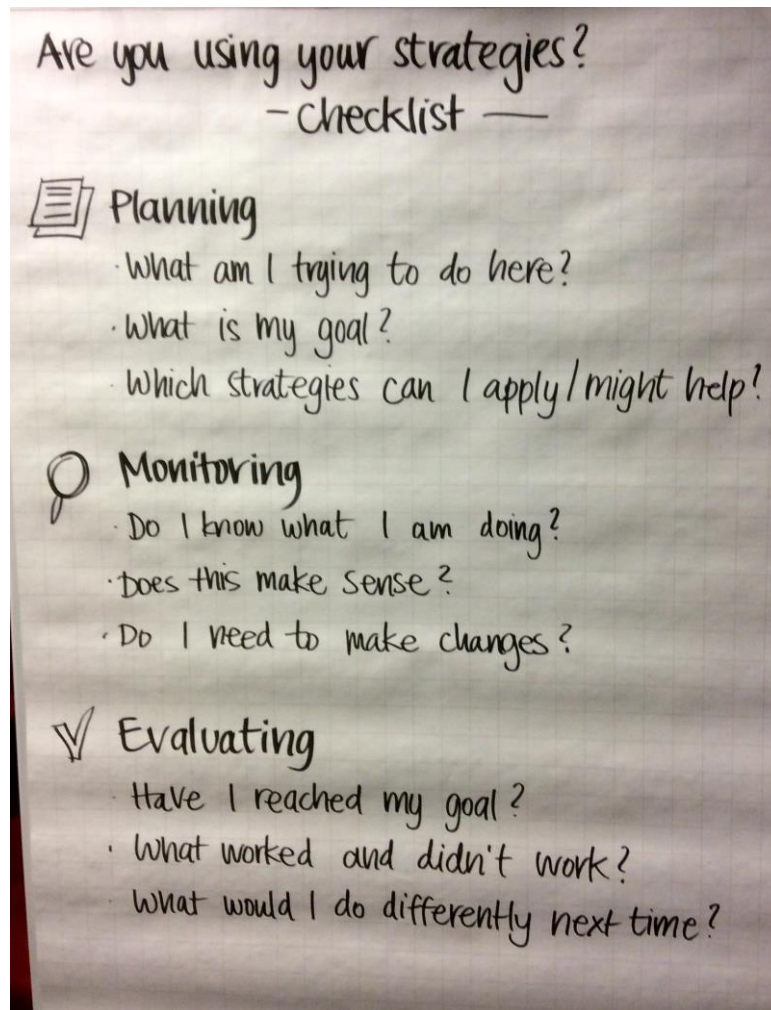 Are you using your strategies?
- checklist —
Planning
· What am I trying to do here?
· What is my goal?
· Which strategies can I apply/might help?
Monitoring
· Do I know what I am doing?
· Does this make sense?
· Do I need to make changes?
Evaluating
· Have I reached my goal?
· What worked and didn't work?
· What would I do differently next time?